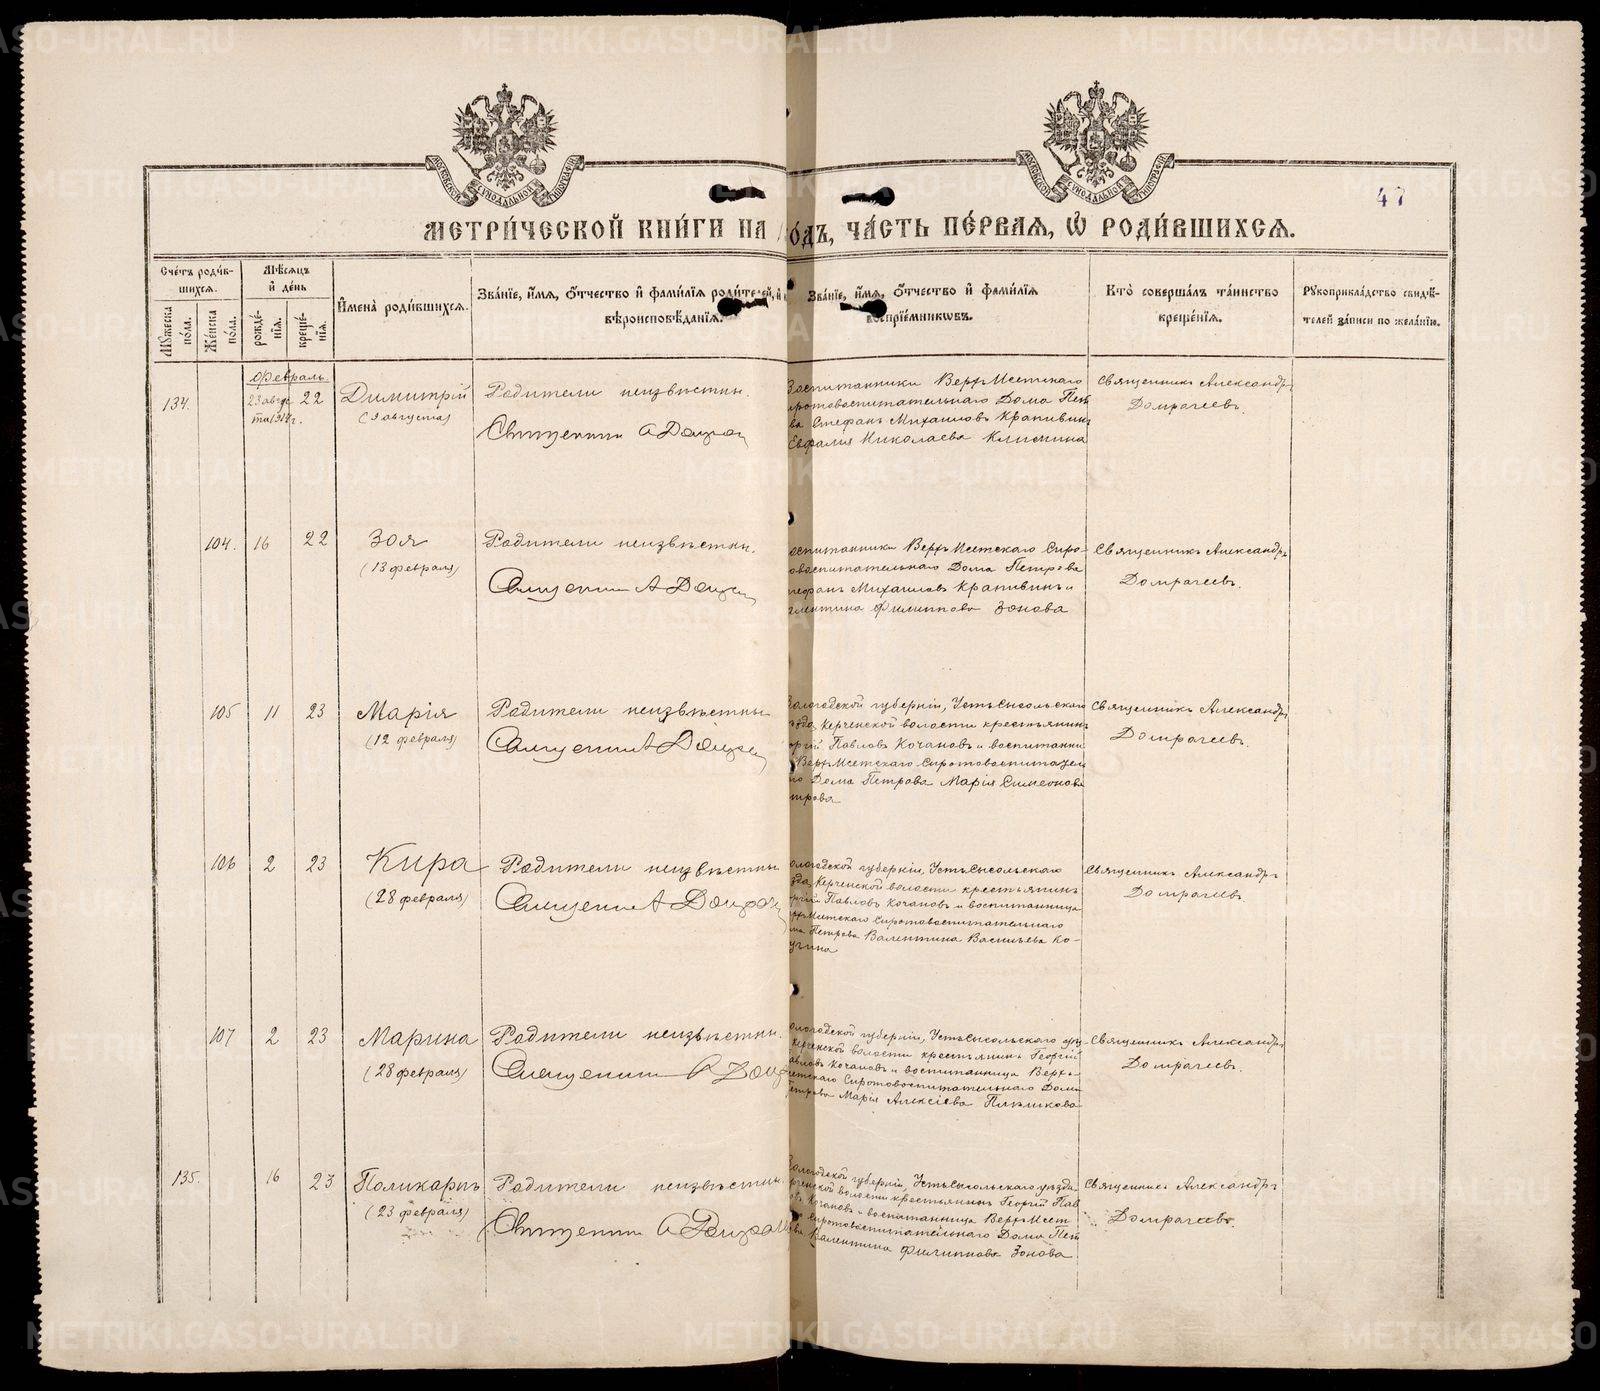 МЕТРИ́ЧЕСКОЙ КНИ́ГИ НА ГО́ДЪ, ЧА́СТЬ ПЕ́РВАЯ, Ѡ РОДИ́ВШИХСЯ.
47
Сче́тъ роди́в-
шихся.
Мꙋ́жеска по́ла.
Же́нска по́ла.
Мѣ́сяцъ
и҆ де́нь
рожде́нїя.
креще́нїя.
И҆мена̀ роди́вшихся.
Зва́нїе, и҆́мя, ѻ҆́тчество и҆ фами́лїя роди́телей, и҆
вѣроисповѣ́данїя.
Зва́нїе, и҆́мя, ѻ҆́тчество и҆ фами́лїя
воспрїе́мникѡвъ.
Кто̀ соверша́лъ та́инство
креще́нїя.
Рꙋкоприкла́дство свидѣ́-
телей за́писи по жела́нїю.
Февраль
134.
23 авгу
ста 1917 г.
22
Димитрій
(9 августа)
Родители неизвѣстны.
Священникъ А
Воспитанники Верхъ Исетскаго
иротовоспитательнаго Дома Пет
ва Стефанъ Михаиловъ Крапивинъ
Евфалія Николаева
Священникъ Александръ
Домрачеевъ.
104.
16
22
Зоя
(13 февраля)
Родители неизвѣстны.
Священникъ А
оспитанники Верхъ Исетскаго Сиро-
овоспитательнаго Дома Петрова
тефанъ Михаиловъ Крапивинъ и
алентина Филиппова Зонова
Священникъ Александръ
Домрачеевъ.
105
11
23
Марія
(12 февраля)
Родители неизвѣстны
Священникъ А
Вологодской губерніи, Устьсысольскаго
ѣзда, Керченской волости крестьянинъ
оргій Павловъ Кочановъ и воспитанни
Верхъ Исетскаго Сиротовоспитател
го Дома Петрова Марія Симеонова
трова
Священникъ Александръ
Домрачеевъ.
106
2
23
Кира
(28 февраля)
Родители неизвѣстны
Священникъ А
ологодской губерніи, Устьсысольскаго
ѣзда, Керченской волости крестьянинъ
ргій Павловъ Кочановъ и воспитанница
рхъ Исетскаго Сиротовоспитательнаго
ма Петрова Валентина Васильева Ко-
Священникъ Александръ
Домрачеевъ.
107
2
23
Марина
(28 февраля)
Родители неизвѣстны.
Священникъ А
ологодской губерніи, Устьсысольскаго уѣз-
Керченской волости крестьянинъ Георгій
авловъ Кочановъ и воспитанница Верхъ-
сетскаго Сиротовоспитательнаго Дома
Петрова Марія Алексіева
Священникъ Александръ
Домрачеевъ.
135.
16
23
Поликарпъ
(23 февраля)
Родители неизвѣстны.
Священникъ А
Вологодской губерніи, Устьсысольскаго уѣзда
рченской волости крестьянинъ Георгій Пав
овъ Кочановъ и воспитанница Верхъ Исет
Сиротовоспитательнаго Дома Пет
ова Валентина Филиппова Зонова
Священникъ Александръ
Домрачеевъ.